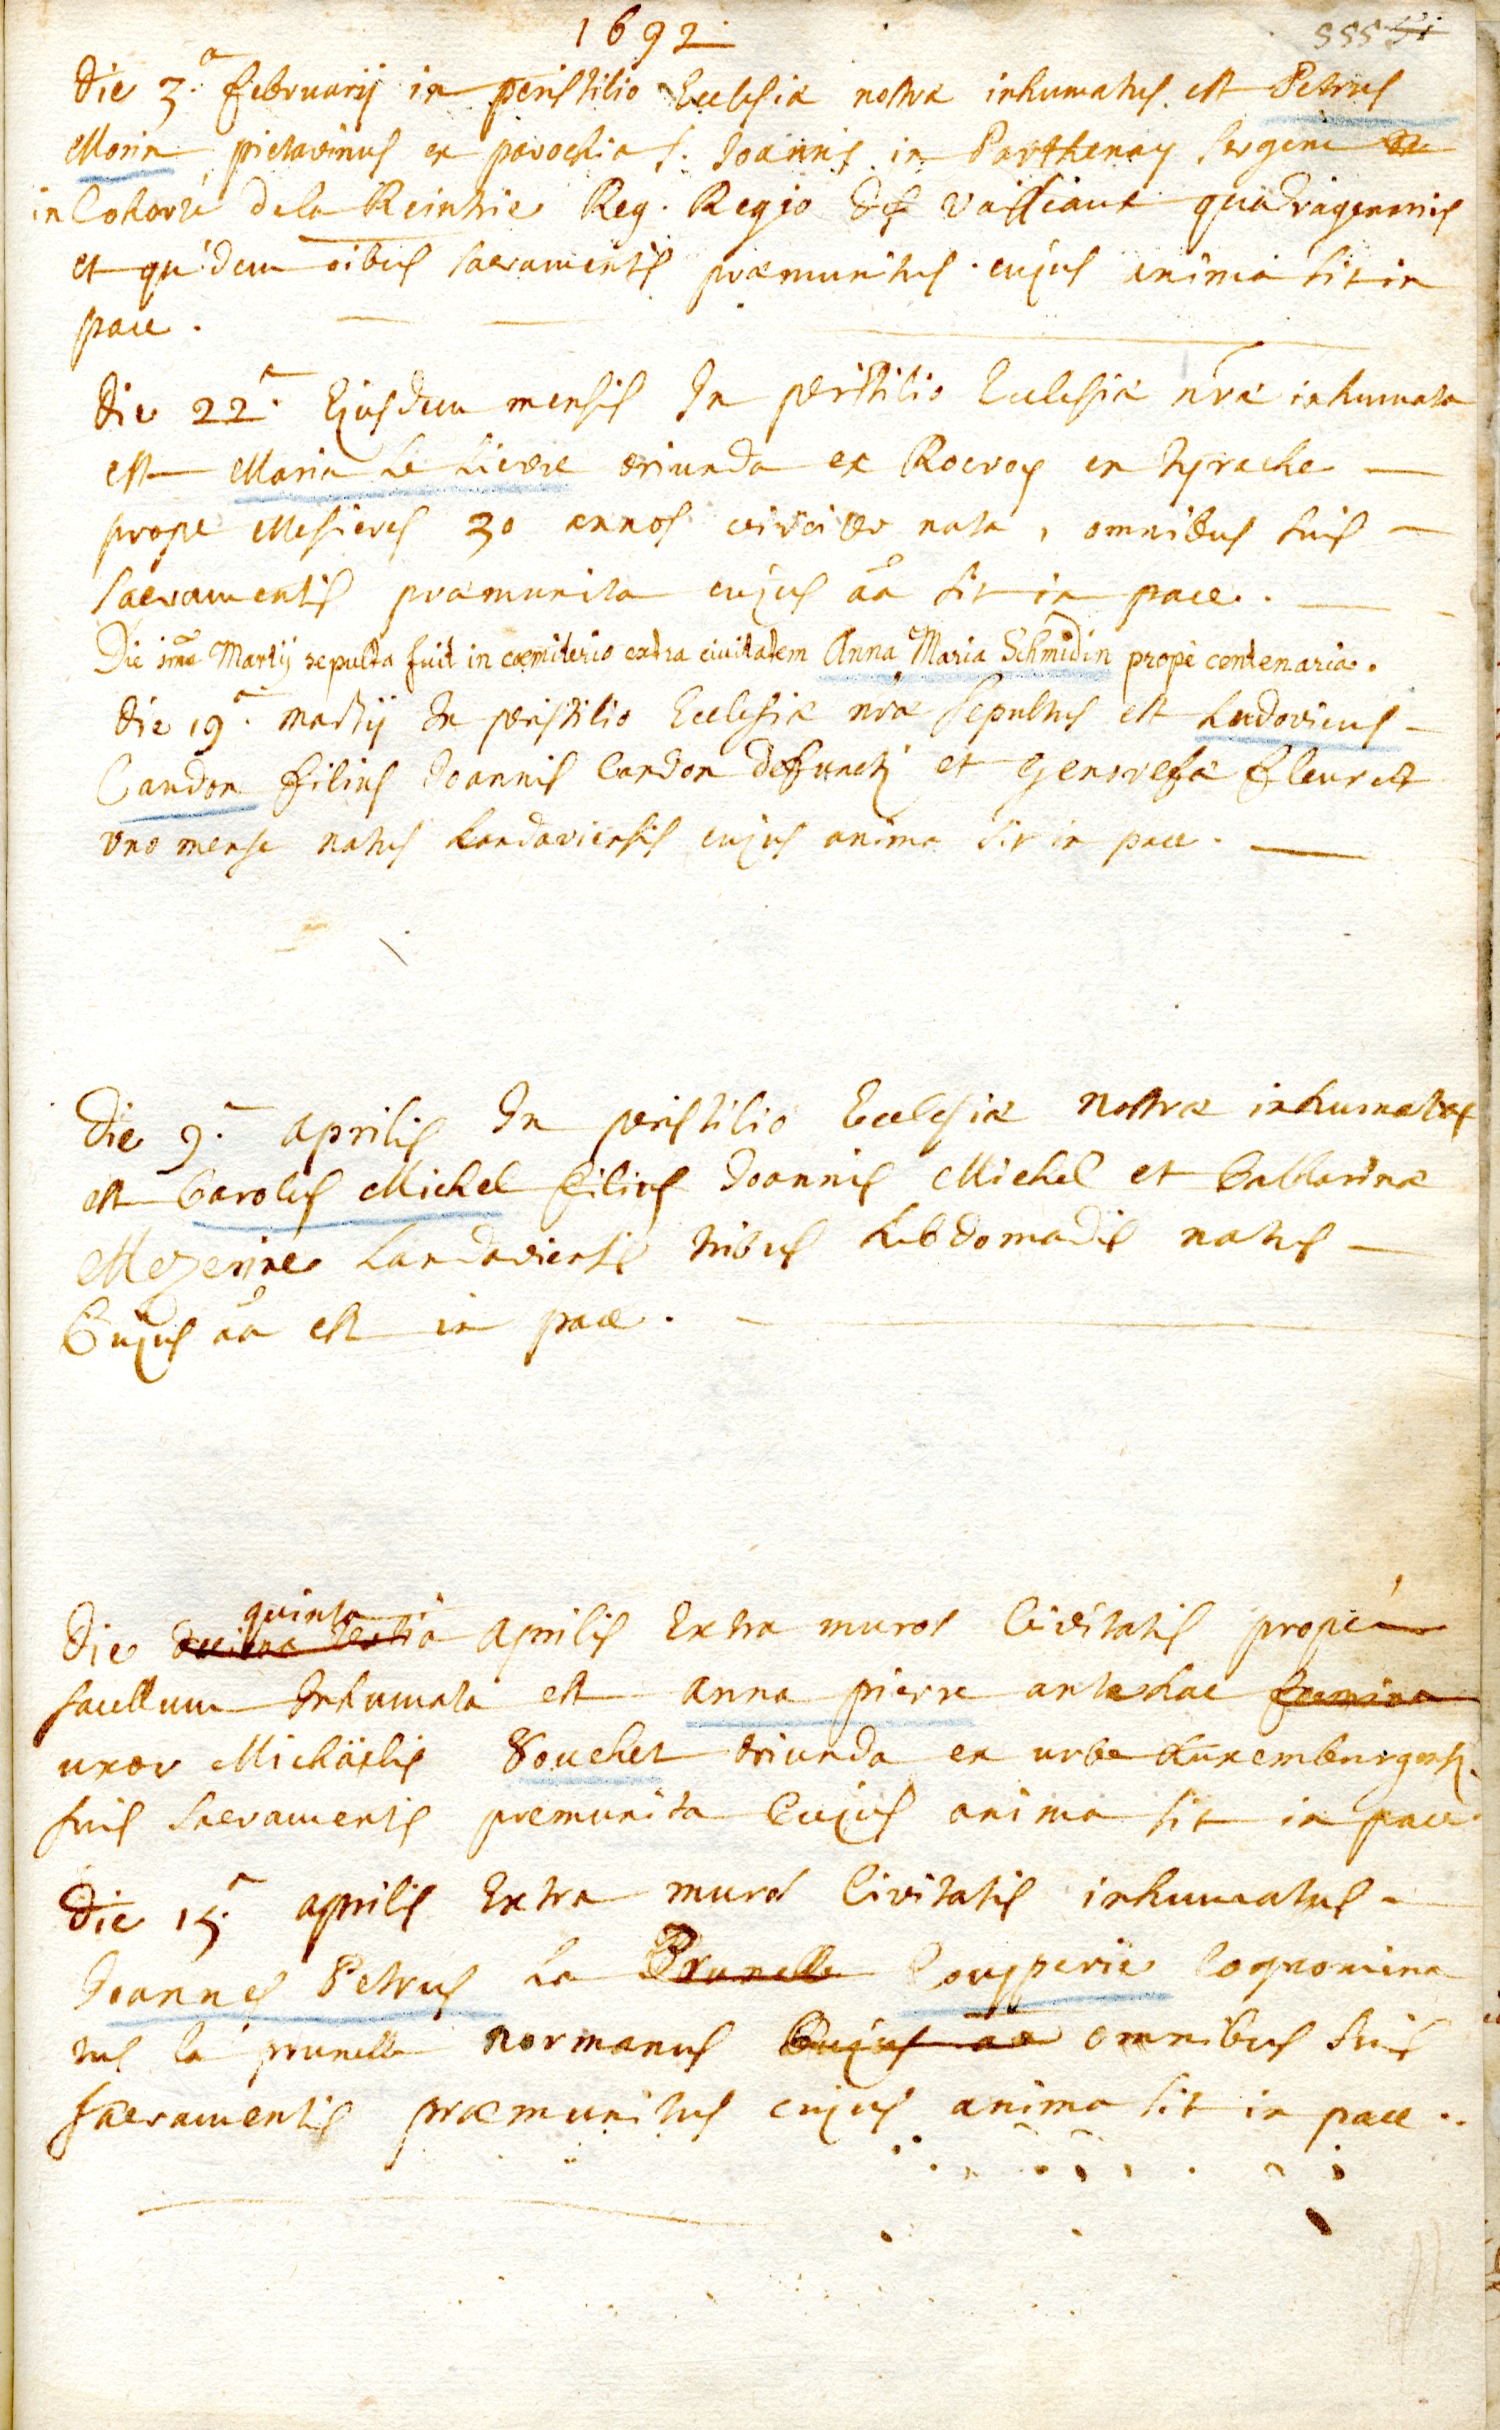 1692
555 51
die 3.a februarij in peristilio Ecclesiæ nostræ inhumatus est Petrus
Morin pictavinus ex parochia S. Joannis in Parthenay sergent
in Cohorte de la Reintrie Reg. Regio des Vaisseaux quadragenarius
et quidem oibus sacramentis præmunitus. cujus anima sit in
pace.
die 22.a Ejusdem mensis In peristilio Ecclesiæ nræ inhumata
est Maria Le Lievre oriunda ex Rocroy en tyrache
prope Mesieres 30 annos circiter nata, omnibus suis
sacramentis præmunita cujus aa sit in pace.
Die 1ma Martij sepulta fuit in cœmiterio extra civitatem Anna Maria Schmidin propè centenaria.
die 19.a martij In peristilio Ecclesiæ nræ sepultus est Ludovicus
Candon filius Joannis Candon defuncti et Genovefæ fleuret
uno mense natus Landaviensis cujus anima sit in pace.
Die 9.a aprilis In peristilio Ecclesiæ nostræ inhumatus
est Carolus Michel filius Joannis Michel et Catharinæ
Mezerine Landaviensis tribus hebdomadis natus
Cujus aa est in pace.
quinta
die decima tertia aprilis Extra muros Civitatis prope
sacellum Inhumata est anna pierre antehac femina
uxor Michäelis Vouchet oriunda ex urbe Luxemburgensi.
suis sacramentis premunita Cujus anima sit in pace
Die 15.a aprilis Extra muros Civitatis inhumatus
Joannes Petrus La Prunelle Coupperie Cognomina
tus la prunelle normanus Cujus aa omnibus suis
sacramentis præmunitus cujus anima sit in pace.